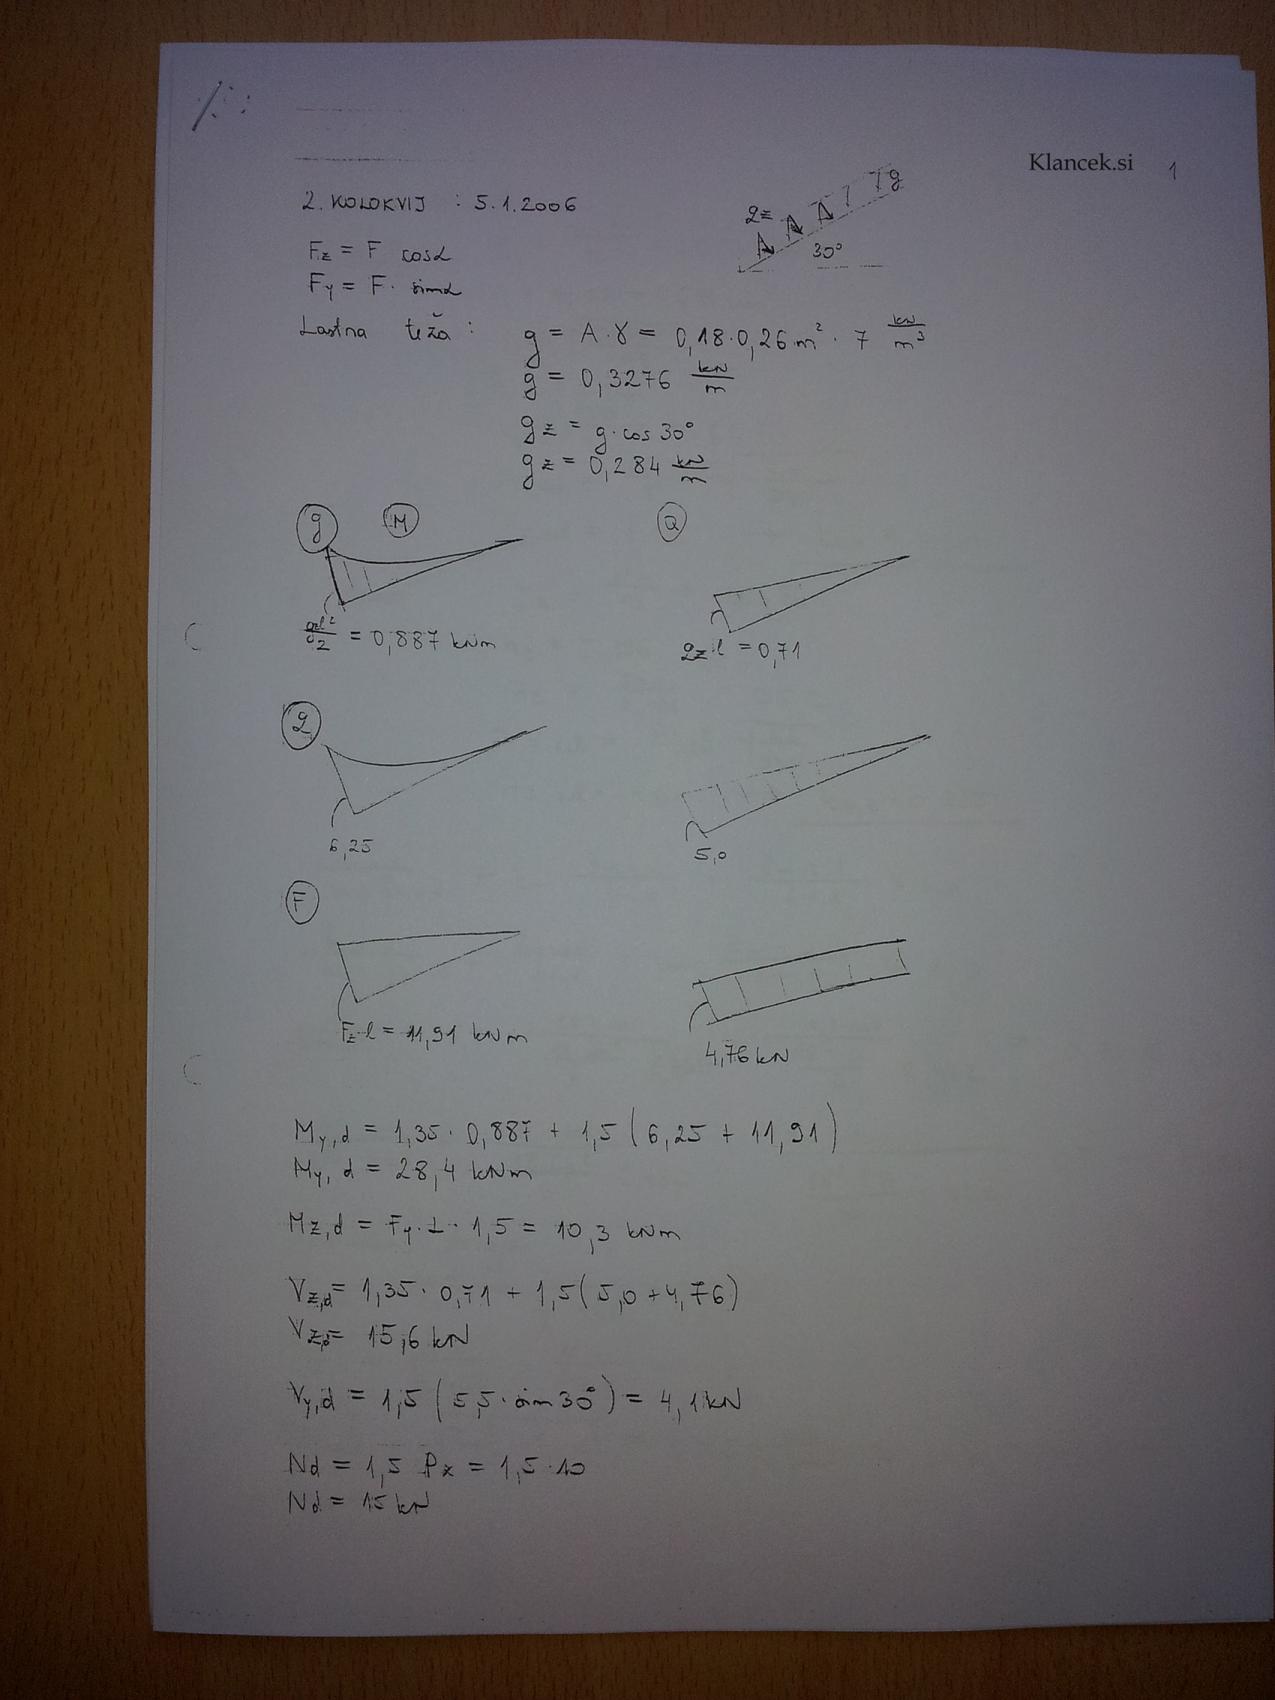 Klancek.si 1
2. KOLOKVIJ : 5.1.2006
qz g
30°
Fz = F cosα
Fy = F · sinα
Lastna teža : g = A · γ = 0,18 · 0,26 m² · 7 kN/m³
g = 0,3276 kN/m
gz = g · cos 30°
gz = 0,284 kN/m
g M Q
gzl²/2 = 0,887 kNm
gz·l = 0,71
q
6,25
5,0
F
Fz·l = 11,91 kNm
4,76 kN
My,d = 1,35 · 0,887 + 1,5 (6,25 + 11,91)
My,d = 28,4 kNm
Mz,d = Fy · L · 1,5 = 10,3 kNm
Vz,d = 1,35 · 0,71 + 1,5 (5,0 + 4,76)
Vz,d = 15,6 kN
Vy,d = 1,5 (5,5 · sin 30°) = 4,1 kN
Nd = 1,5 Px = 1,5 · 10
Nd = 15 kN